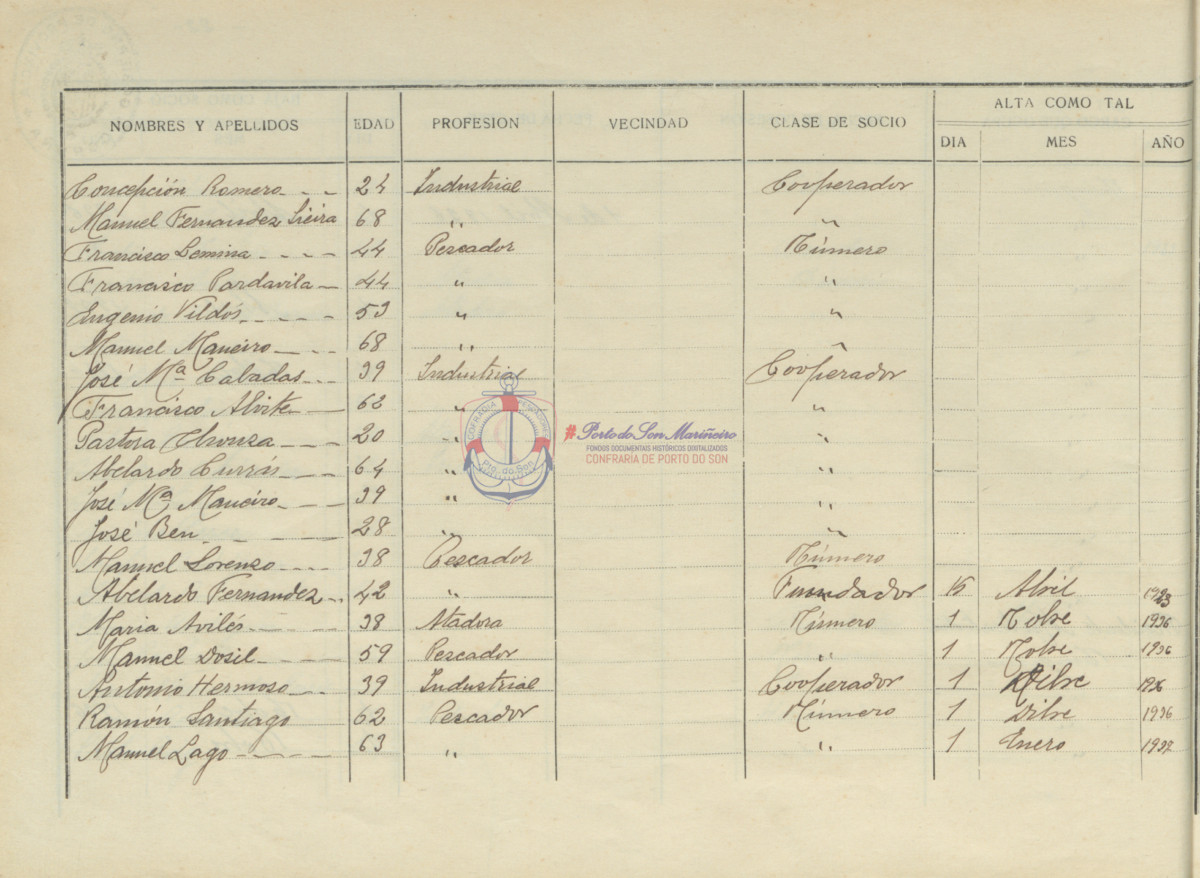 ALTA COMO TAL
NOMBRES Y APELLIDOS EDAD PROFESION VECINDAD CLASE DE SOCIO DIA MES AÑO
Concepción Romero 24 Industrial Cooperador
Manuel Fernandez Sieira 68 " "
Francisco Lemina 44 Pescador Número
Francisco Pardavila 44 " "
Eugenio Vildós 53 " "
Manuel Maneiro 68 " "
José Mª Cabadas 39 Industrial Cooperador
Francisco Alvite 62 " "
Pastora 20 " "
Abelardo Currás 64 " "
José Mª Maneiro 39 " "
José Ben 28 " "
Manuel Lorenzo 38 Pescador Número
Abelardo Fernandez 42 " Fundador 15 Abril
Maria Avilés 38 Atadora Número 1 Nobre 1936
Manuel Dosil 59 Pescador " 1 Nobre 1936
Antonio Hermoso 39 Industrial Cooperador 1 Dibre 1936
Ramón Santiago 62 Pescador Número 1 Dibre 1936
Manuel Lago 63 " " 1 Enero 1937
COFRADIA
Pto. do Son
#Porto do Son Mariñeiro
FONDOS DOCUMENTAIS HISTÓRICOS DIGITALIZADOS
CONFRARÍA DE PORTO DO SON